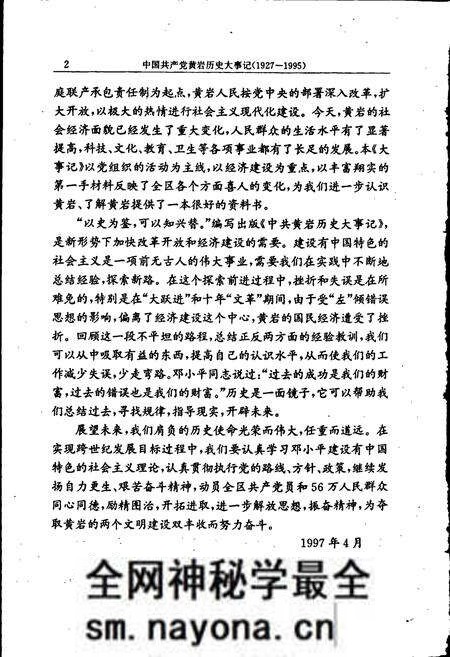 2 中国共产党黄岩历史大事记(1927—1995)
庭联产承包责任制为起点,黄岩人民按党中央的部署深入改革,扩
大开放,以极大的热情进行社会主义现代化建设。今天,黄岩的社
会经济面貌已经发生了重大变化,人民群众的生活水平有了显著
提高,科技、文化、教育、卫生等各项事业都有了长足的发展。本《大
事记》以党组织的活动为主线,以经济建设为重点,以丰富翔实的
第一手材料反映了全区各个方面喜人的变化,为我们进一步认识
黄岩、了解黄岩提供了一本很好的资料书。
“以史为鉴,可以知兴替。”编写出版《中共黄岩历史大事记》,
是新形势下加快改革开放和经济建设的需要。建设有中国特色的
社会主义是一项前无古人的伟大事业,需要我们在实践中不断地
总结经验,探索新路。在这个探索前进过程中,挫折和失误是在所
难免的,特别是在“大跃进”和十年“文革”期间,由于受“左”倾错误
思想的影响,偏离了经济建设这个中心,黄岩的国民经济遭受了挫
折。回顾这一段不平坦的路程,总结正反两方面的经验教训,我们
可以从中吸取有益的东西,提高自己的认识水平,从而使我们的工
作减少失误,少走弯路。邓小平同志说过:“过去的成功是我们的财
富,过去的错误也是我们的财富。”历史是一面镜子,它可以帮助我
们总结过去,寻找规律,指导现实,开辟未来。
展望未来,我们肩负的历史使命光荣而伟大,任重而道远。在
实现跨世纪发展目标过程中,我们要认真学习邓小平建设有中国
特色的社会主义理论,认真贯彻执行党的路线、方针、政策,继续发
扬自力更生、艰苦奋斗精神,动员全区共产党员和56万人民群众
同心同德,励精图治,开拓进取,进一步解放思想,振奋精神,为夺
取黄岩的两个文明建设双丰收而努力奋斗。
1997年4月
全网神秘学最全
sm.nayona.cn